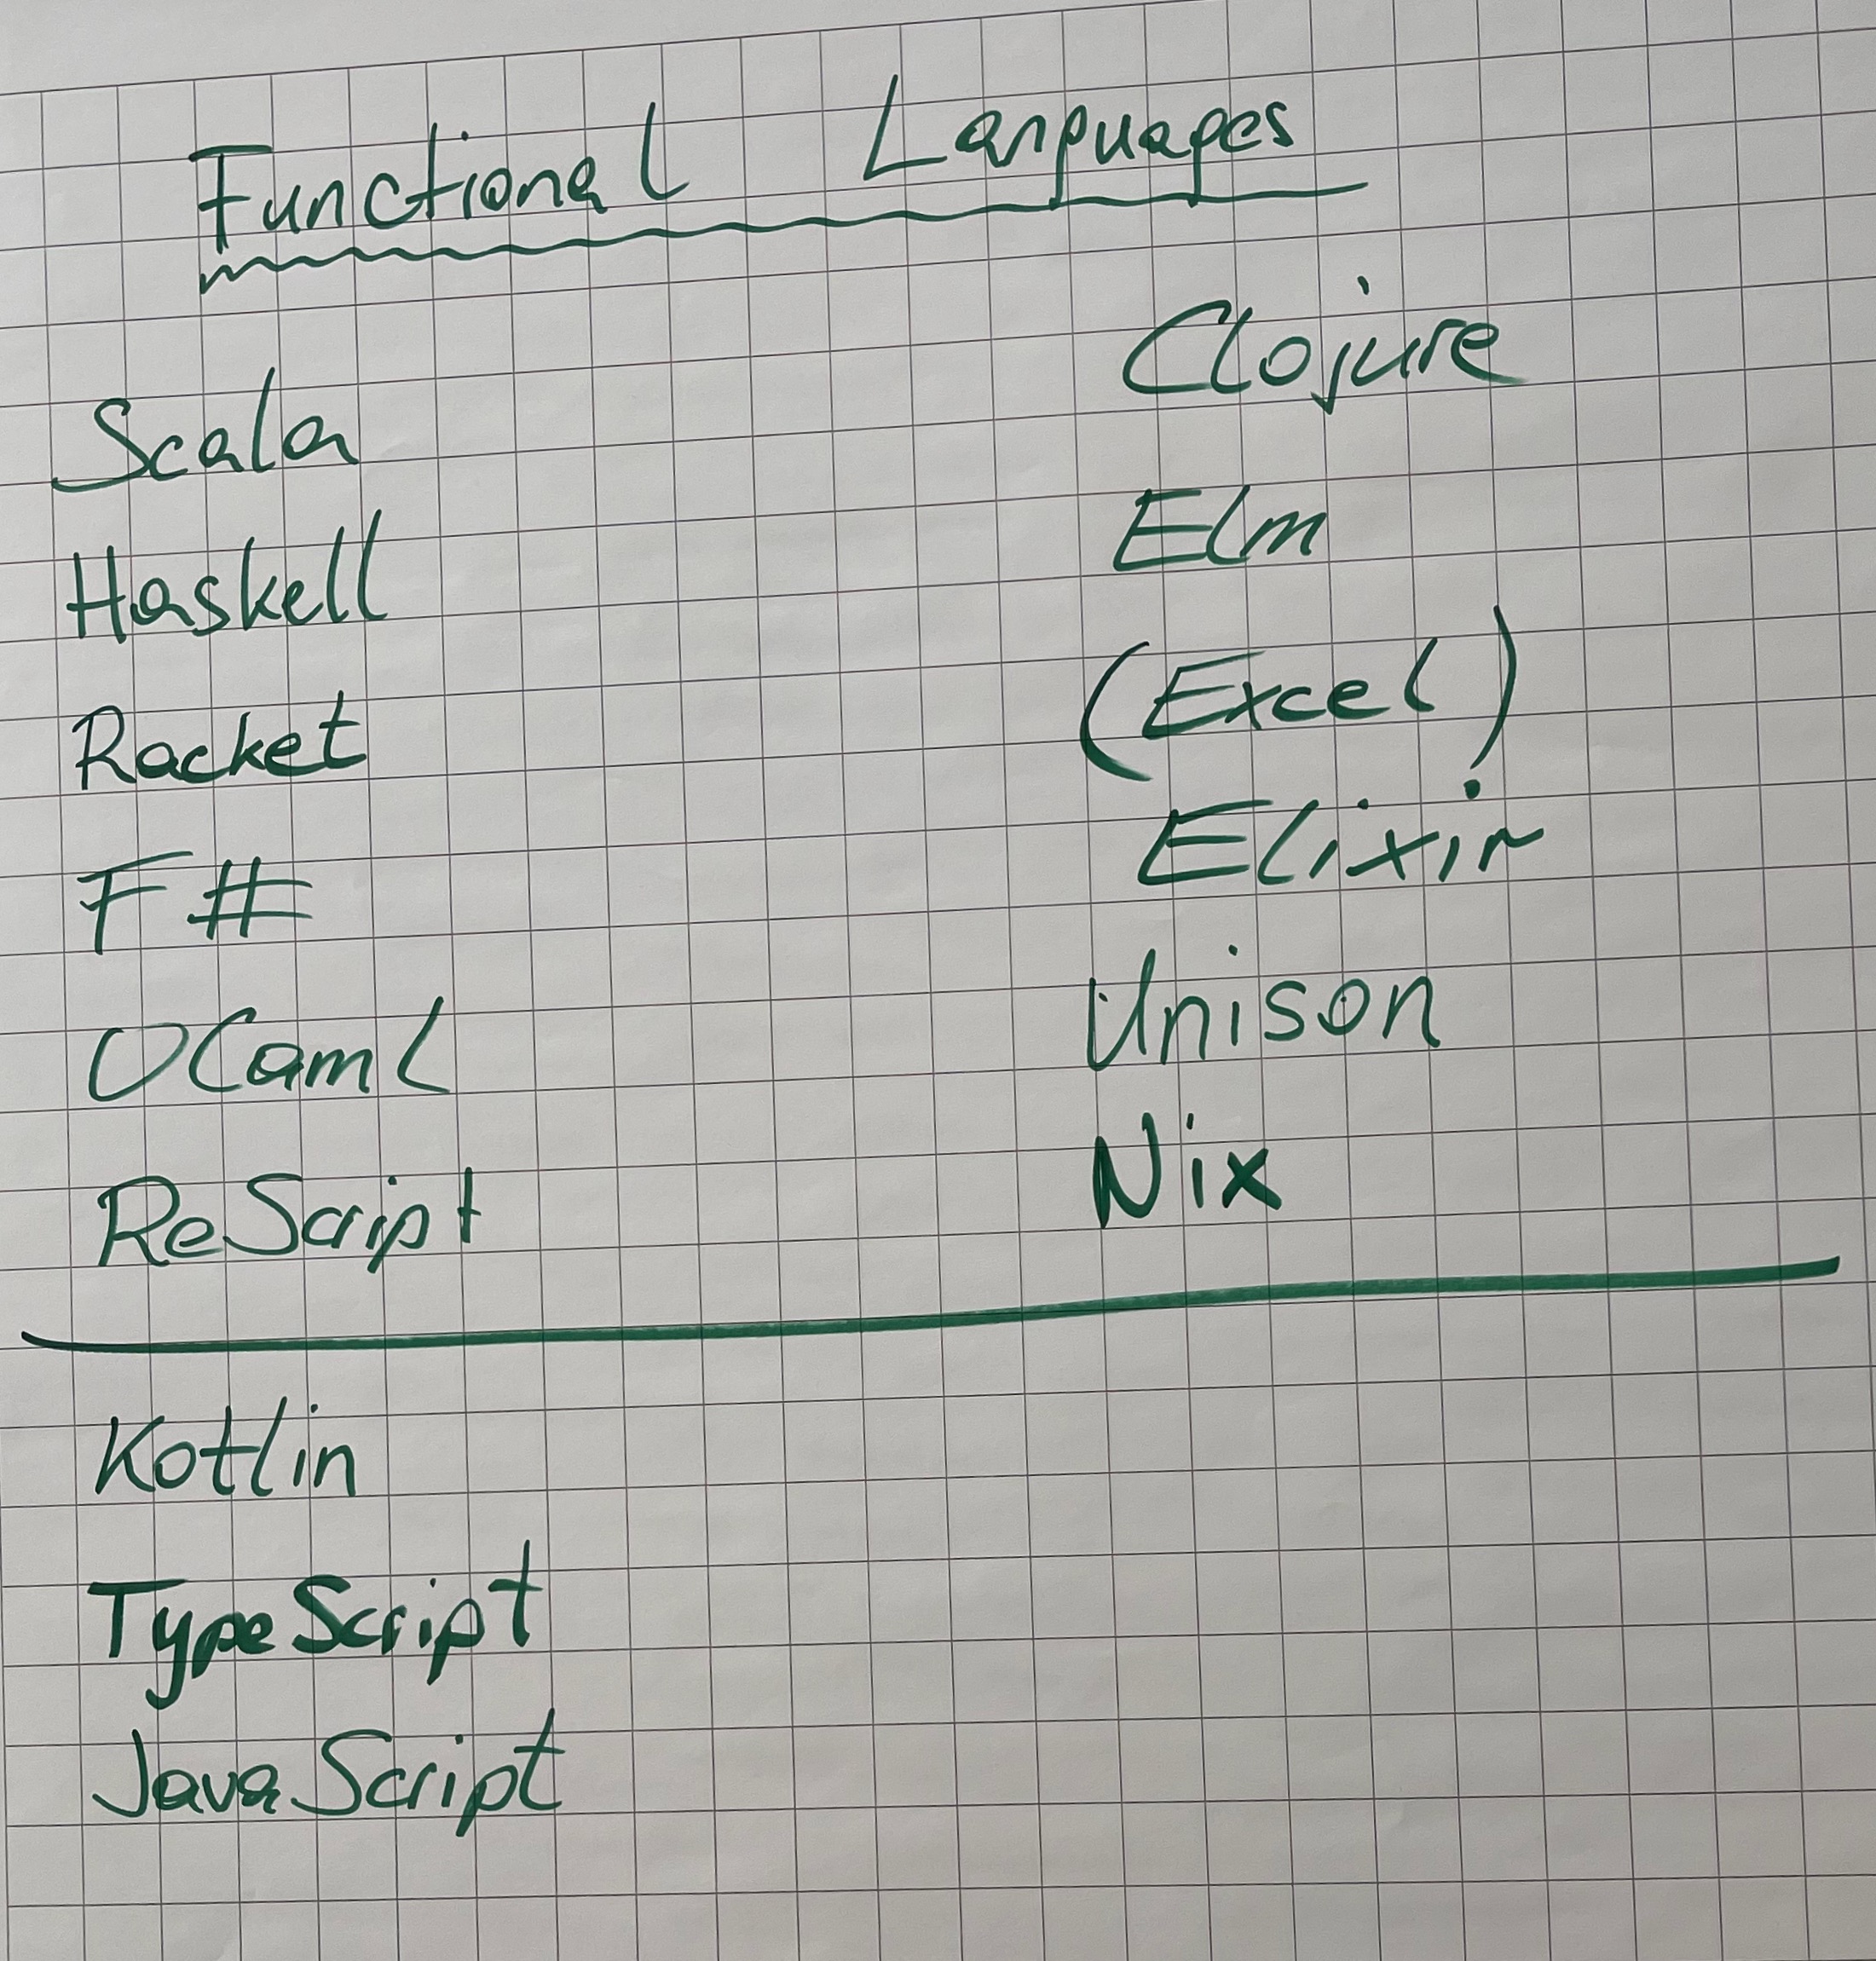 Functional Languages
Scala
Haskell
Racket
F#
OCaml
ReScript
Clojure
Elm
(Excel)
Elixir
Unison
Nix
Kotlin
TypeScript
JavaScript